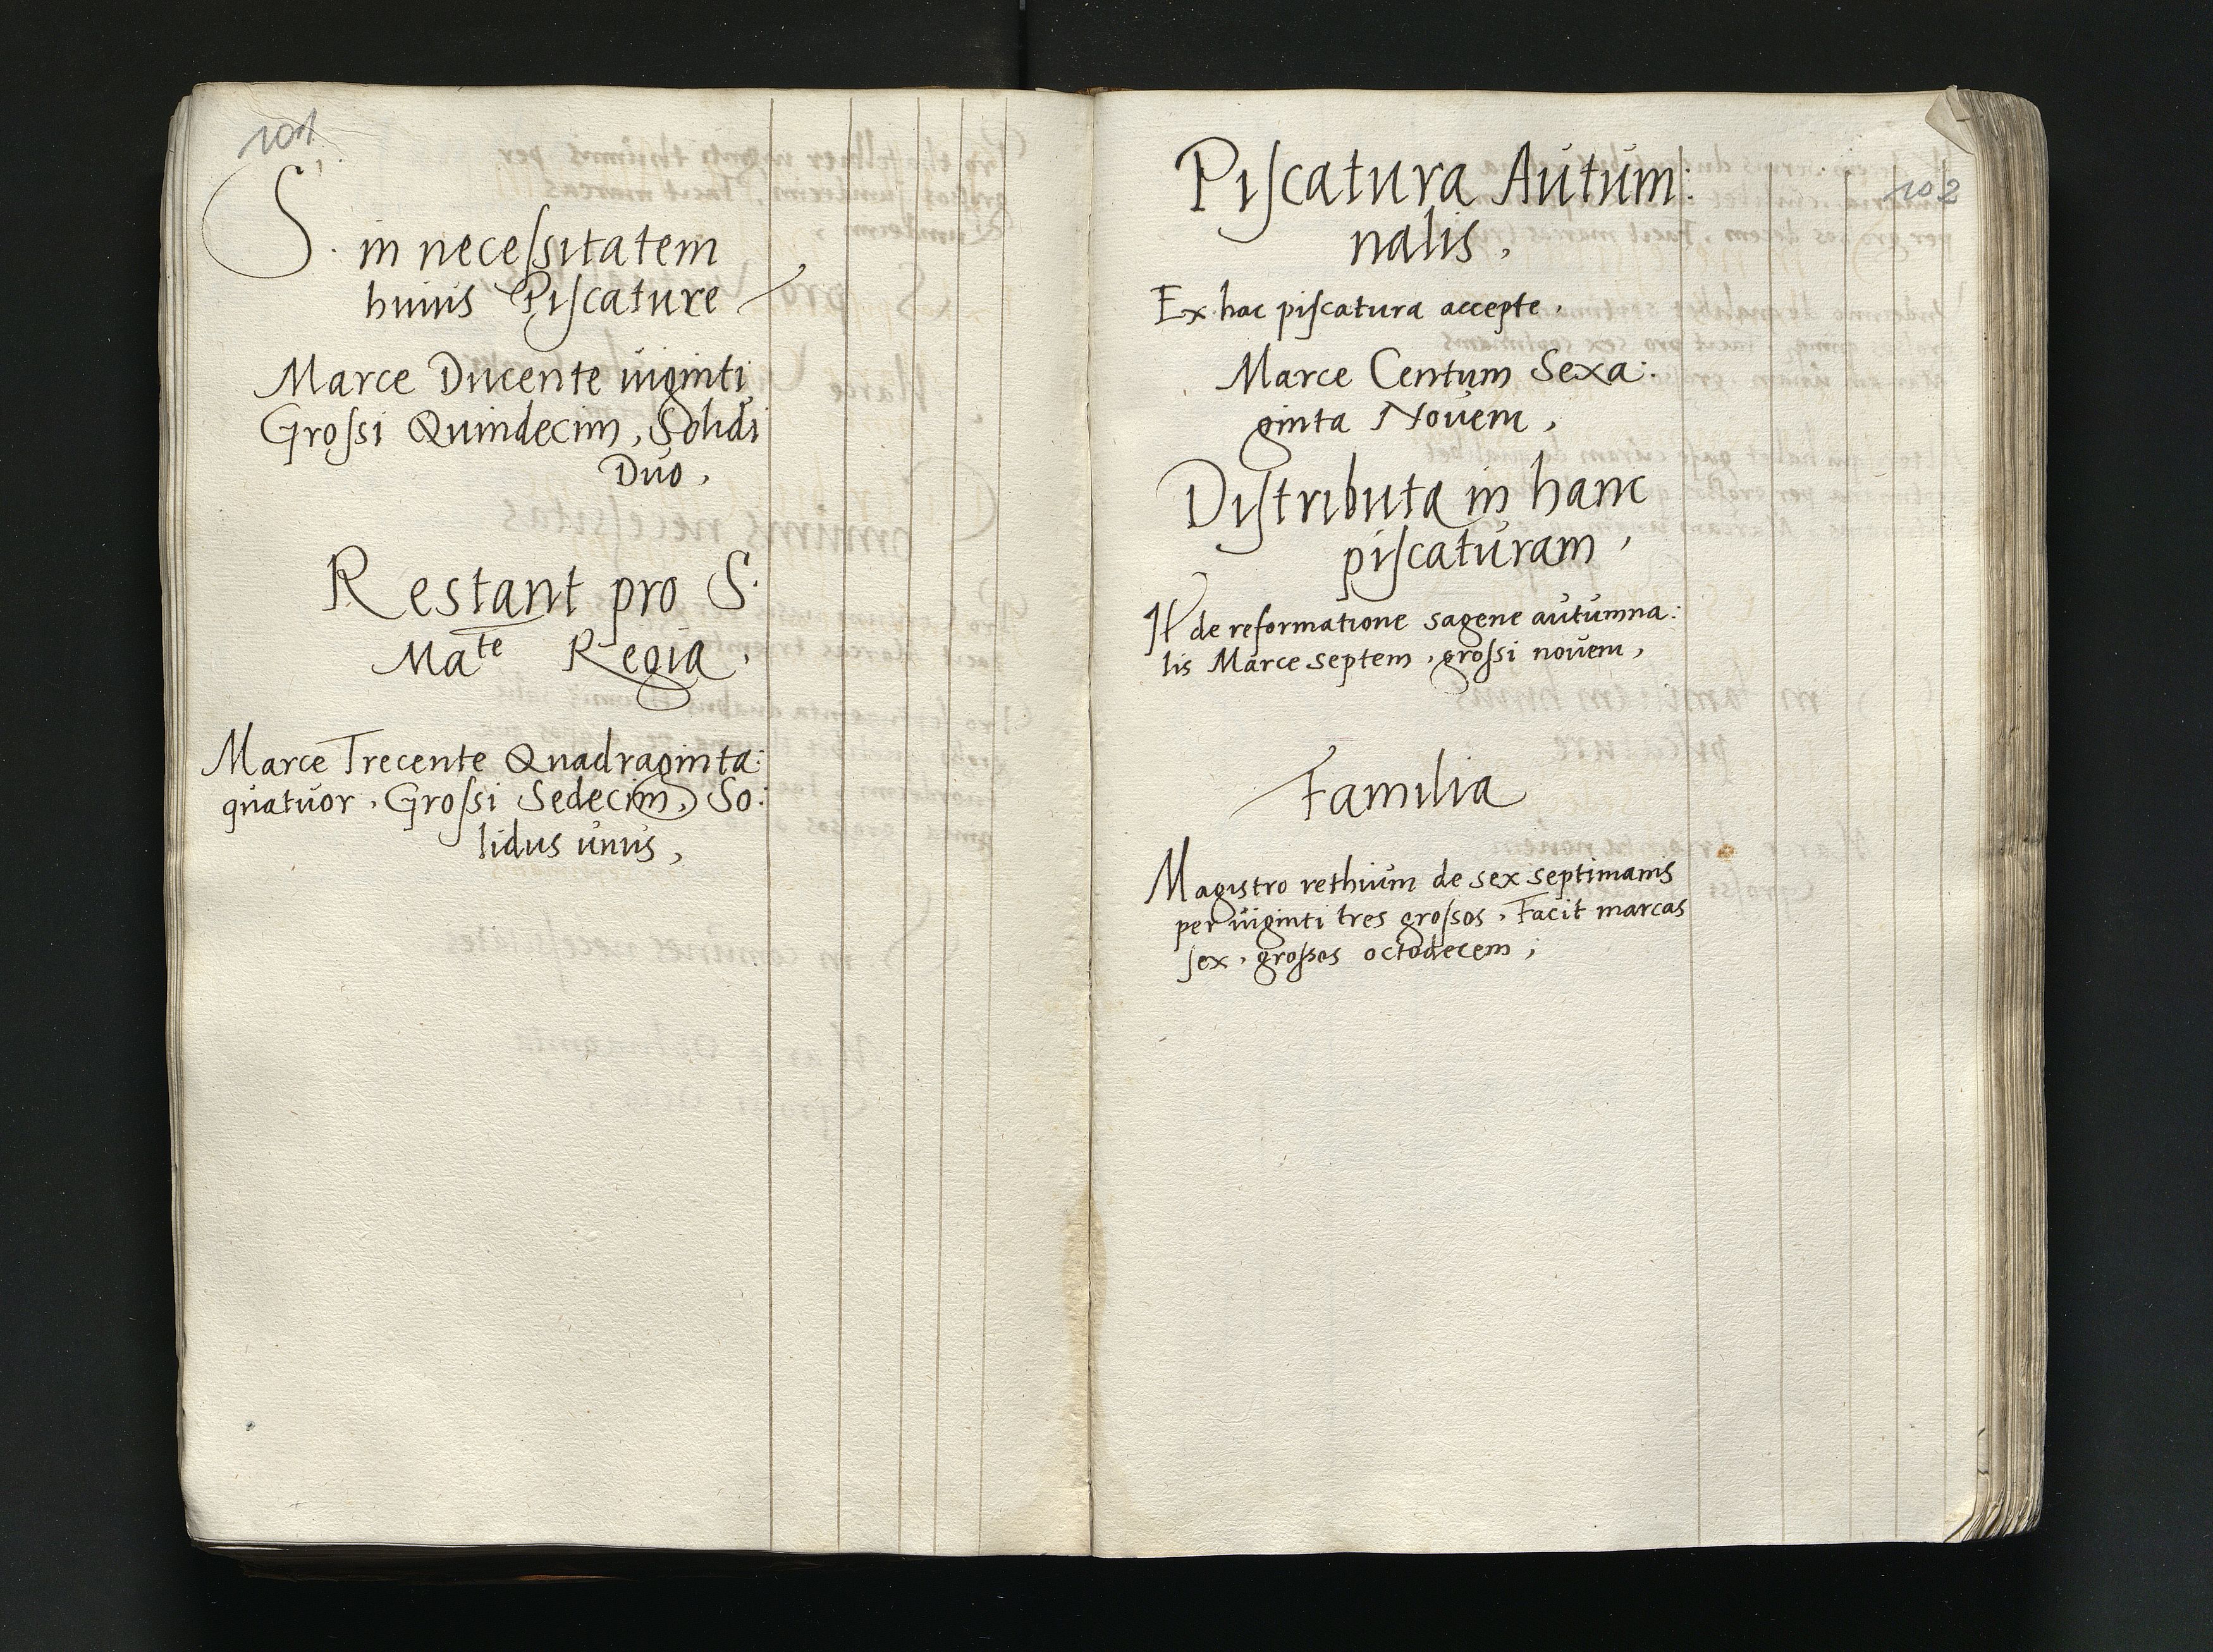 101
S. in necessitatem
huius Piscature
Marce Ducente uiginti
Grossi Quindecim, Solidi
Duo,
Restant pro S.
Mate Regia.
Marce Trecente Quadraginta:
quatuor, Grossi Sedecim, So:
lidus unus,
102
Piscatura Autum:
nalis,
Ex hac piscatura accepte,
Marce Centum Sexa:
ginta Novem,
Distributa in hanc
piscaturam,
It de reformatione sagene autumna:
lis Marce septem, grossi novem,
Familia
Magistro rethium de sex septimanis
per uiginti tres grossos, Facit marcas
sex, grossos octodecem;